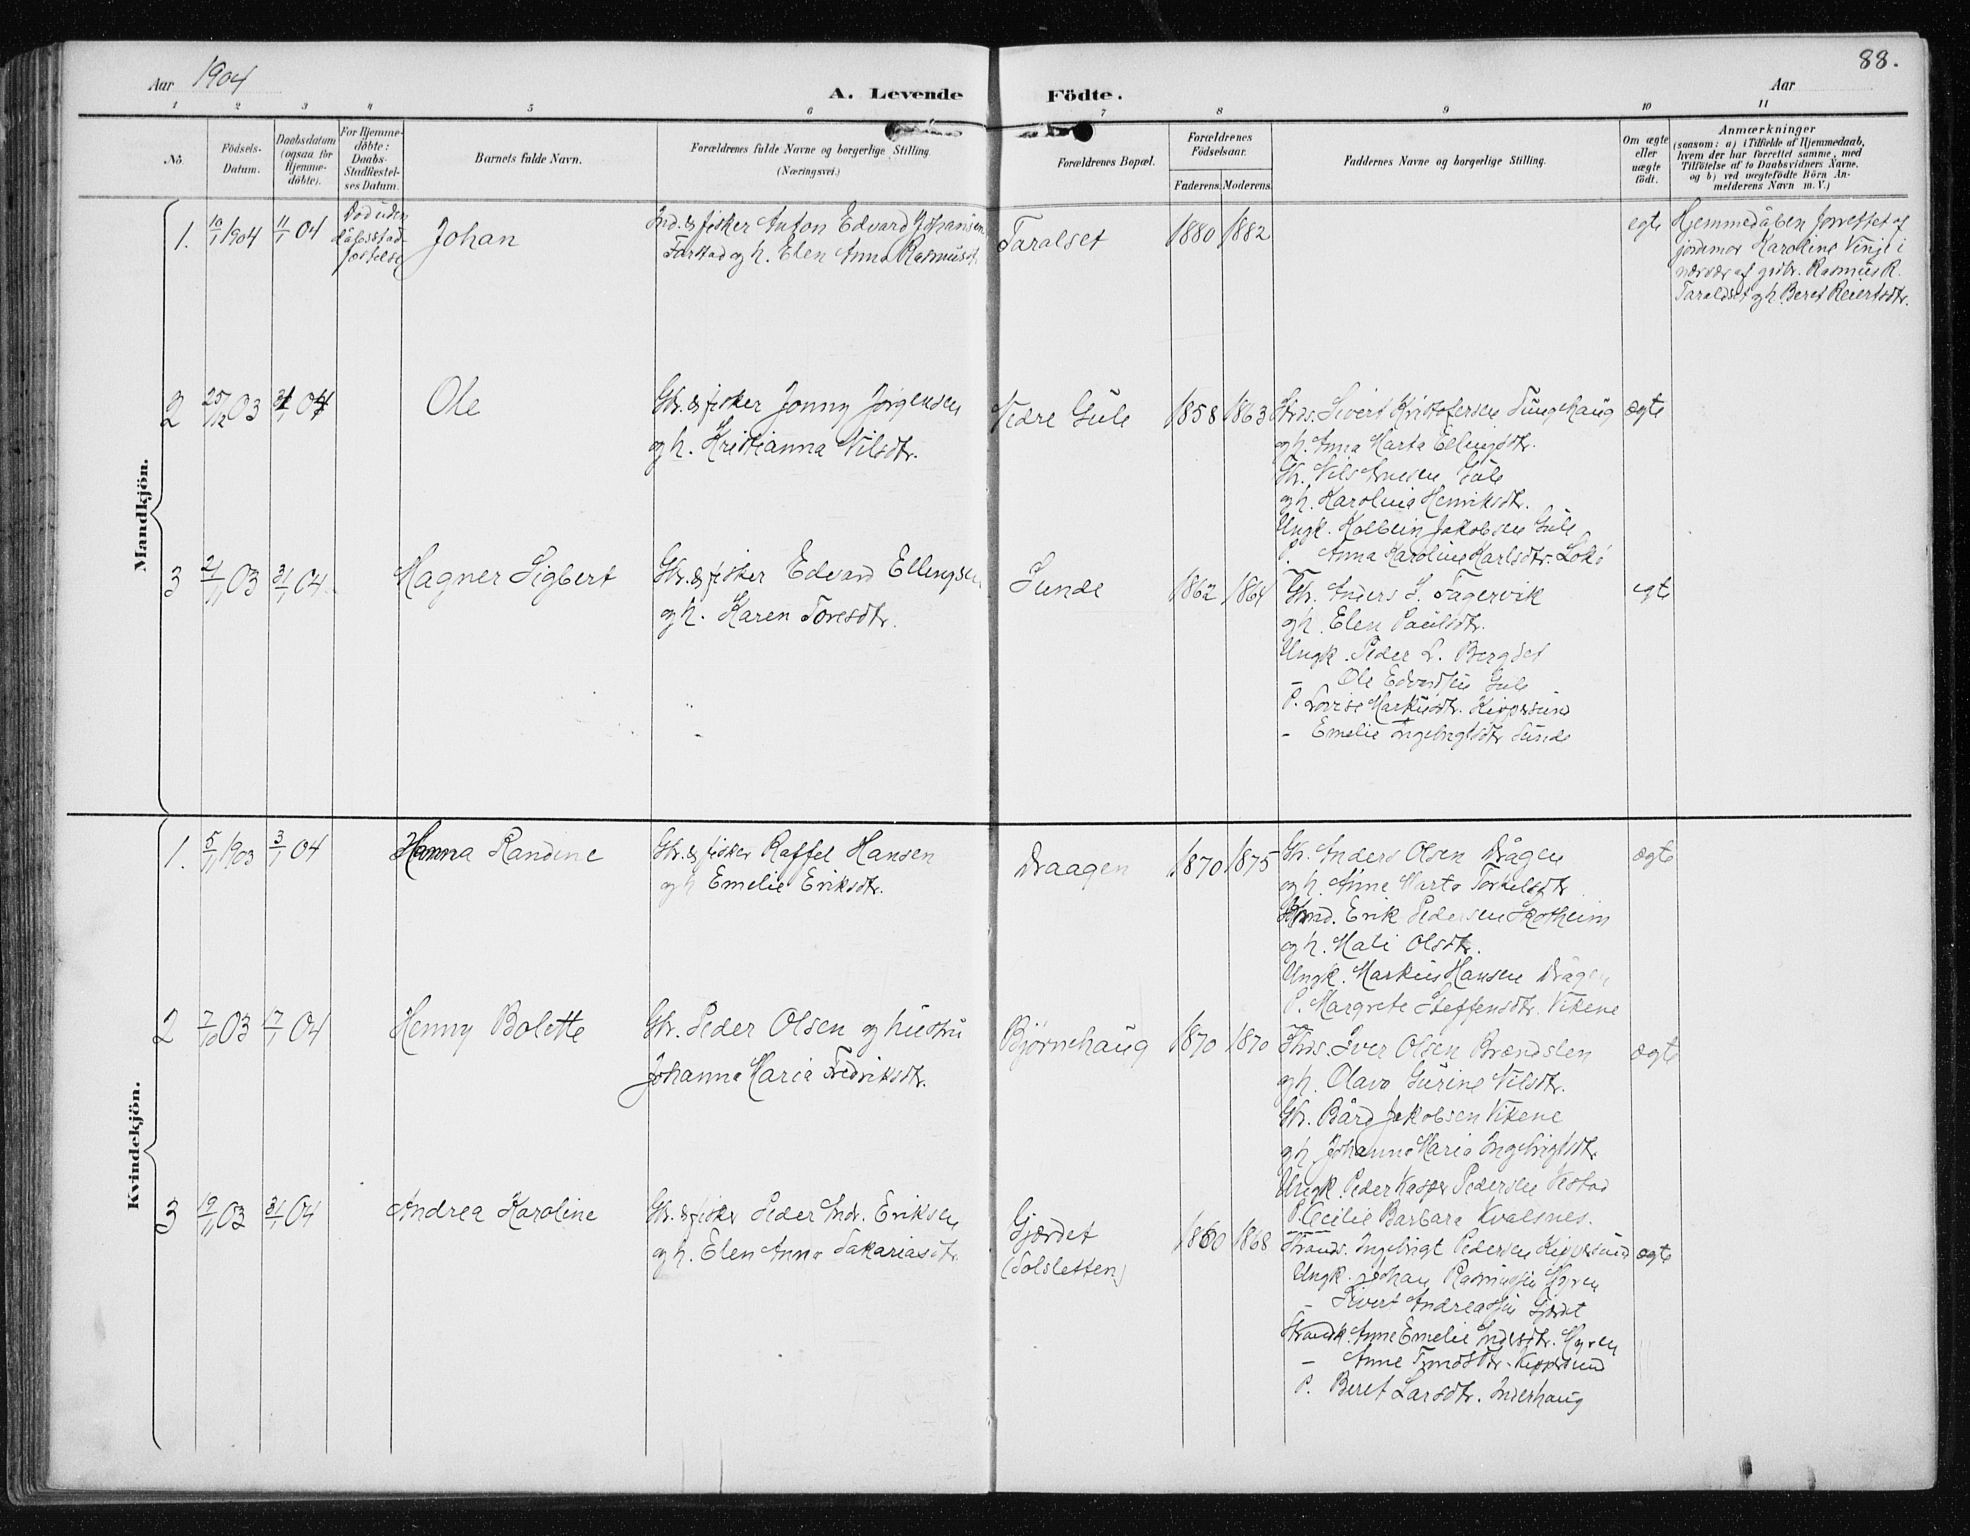 Aar 1904
A. Levende Födte.
Aar
88.
1 2 3 4 5 6 7 8 9 10 11
No.
Födsels-Datum.
Daabsdatum (ogsaa for Hjemme-döbte).
For Hjemme-döbte: Daabs-Stadfæstel-ses Datum.
Barnets fulde Navn.
Forældrenes fulde Navne og borgerlige Stilling. (Næringsvei.)
Forældrenes Bopæl.
Forældrenes Födselsaar.
Faderens. Moderens.
Faddernes Navne og borgerlige Stilling.
Om ægte eller uægte födt.
Anmærkninger
(saasom: a) i Tilfælde af Hjemmedaab, hvem der har forrettet samme, med Tilföielse af to Daabsvidners Navne, og b) ved uægtefödte Börn An-melderens Navn m. V.)
Mandkjön.
1. 10/1 1904 11/1 04
Död uden dåbsstad-festelse
Johan
Ind. & fisker Anton Edvard Johansen
Farstad og h. Elen Anna Rasmusdt.
Taralset
1880 1882
egte
Hjemmedåben forrettet af
jordmor Karoline Venge i
nærvær af gbr. Rasmus R.
Taraldset og h. Beret Reiertsdtr.
2 25/12 03 31/1 04
Ole
Gbr. & fisker Jonny Jørgensen
og h. Kristianna Nilsdtr.
Nedre Gule
1858 1863
Sivert Kristofersen Tungehaug
og h. Anna Marta Ellingsdtr.
Gbr. Nils Gule
og h. Karolina Henriksdtr.
Ungk. Kolbein Jakobsen Gule
P. Anna Karoline Karlsdtr.
ægte
3 21/11 03 31/1 04
Magner Sigbert
Gbr. & fisker Edvard Ellingsen
og h. Karen Toresdtr.
Sunde
1862 1864
Gbr. Anders S. Fagervik
og h. Elen Paulsdtr.
Ungk. Peder L. Bergset
- Ole Edvardsen Gule
P. Lovise Markusdtr. Kippersund
- Emelie Ingebrigtsdtr Sunde
egte
Kvindekjön.
1. 5/11 1903 3/1 04
Hanna Randine
Gbr. & fisker Raffel Hansen
og h Emelie Eriksdtr.
Draagen
1870 1875
Gbr. Anders Olsen Drågen
og h. Anne Marta Torkelsdtr
Erik Pedersen Skotheim
og h. Mali Olsdtr.
Ungk. Markus Hansen Drågen
P. Margrete Steffensdtr. Vikene
ægte
2 7/10 03 17/1 04
Henny Bolette
Gbr. Peder Olsen og hustru
Johanna Maria Fredriksdtr.
Bjørnehaug
1870 1870
Iver Olsen Brændslen
og h. Olava Gurine Nilsdtr.
Gbr. Bård Jakobsen Vikene
og h. Johanna Maria Ingebrigtsdtr.
Ungk. Peder Kasper Pedersen Vestad
P. Cecilie Barbara Kvalsnes.
ægte
3 19/11 03 31/1 04
Andrea Karoline
Gbr. & fisker Peder Andr. Eriksen
og h. Elen Anna Sakariasdtr.
Gjærdet
(Solsletten)
1860 1868
Strands. Ingebrigt Pedersen Kippersund
Ungk. Johan Rasmussen Myren
- Sivert Andreassen Gjærdet
Strandk. Anne Emelie Myren
- Anne Kippersund
P. Beret Larsdtr. Inderhaug
ægte